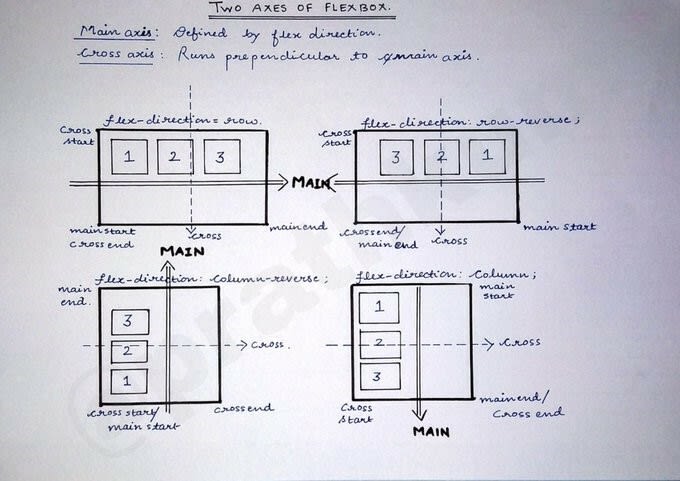 TWO AXES OF FLEXBOX.
Main axis: Defined by flex direction.
Cross axis: Runs prependicular to main axis.
flex-direction = row.
Cross start
1 2 3
MAIN
main start
cross end
main end
cross
flex-direction: row-reverse;
Cross start
3 2 1
crossend/
main end
cross
main start
MAIN
flex-direction: Column-reverse;
main end.
3
2
1
cross.
cross start/
main start
cross end
flex-direction: Column;
main start
1
2
3
cross
Cross start
mainend/
Cross end
MAIN